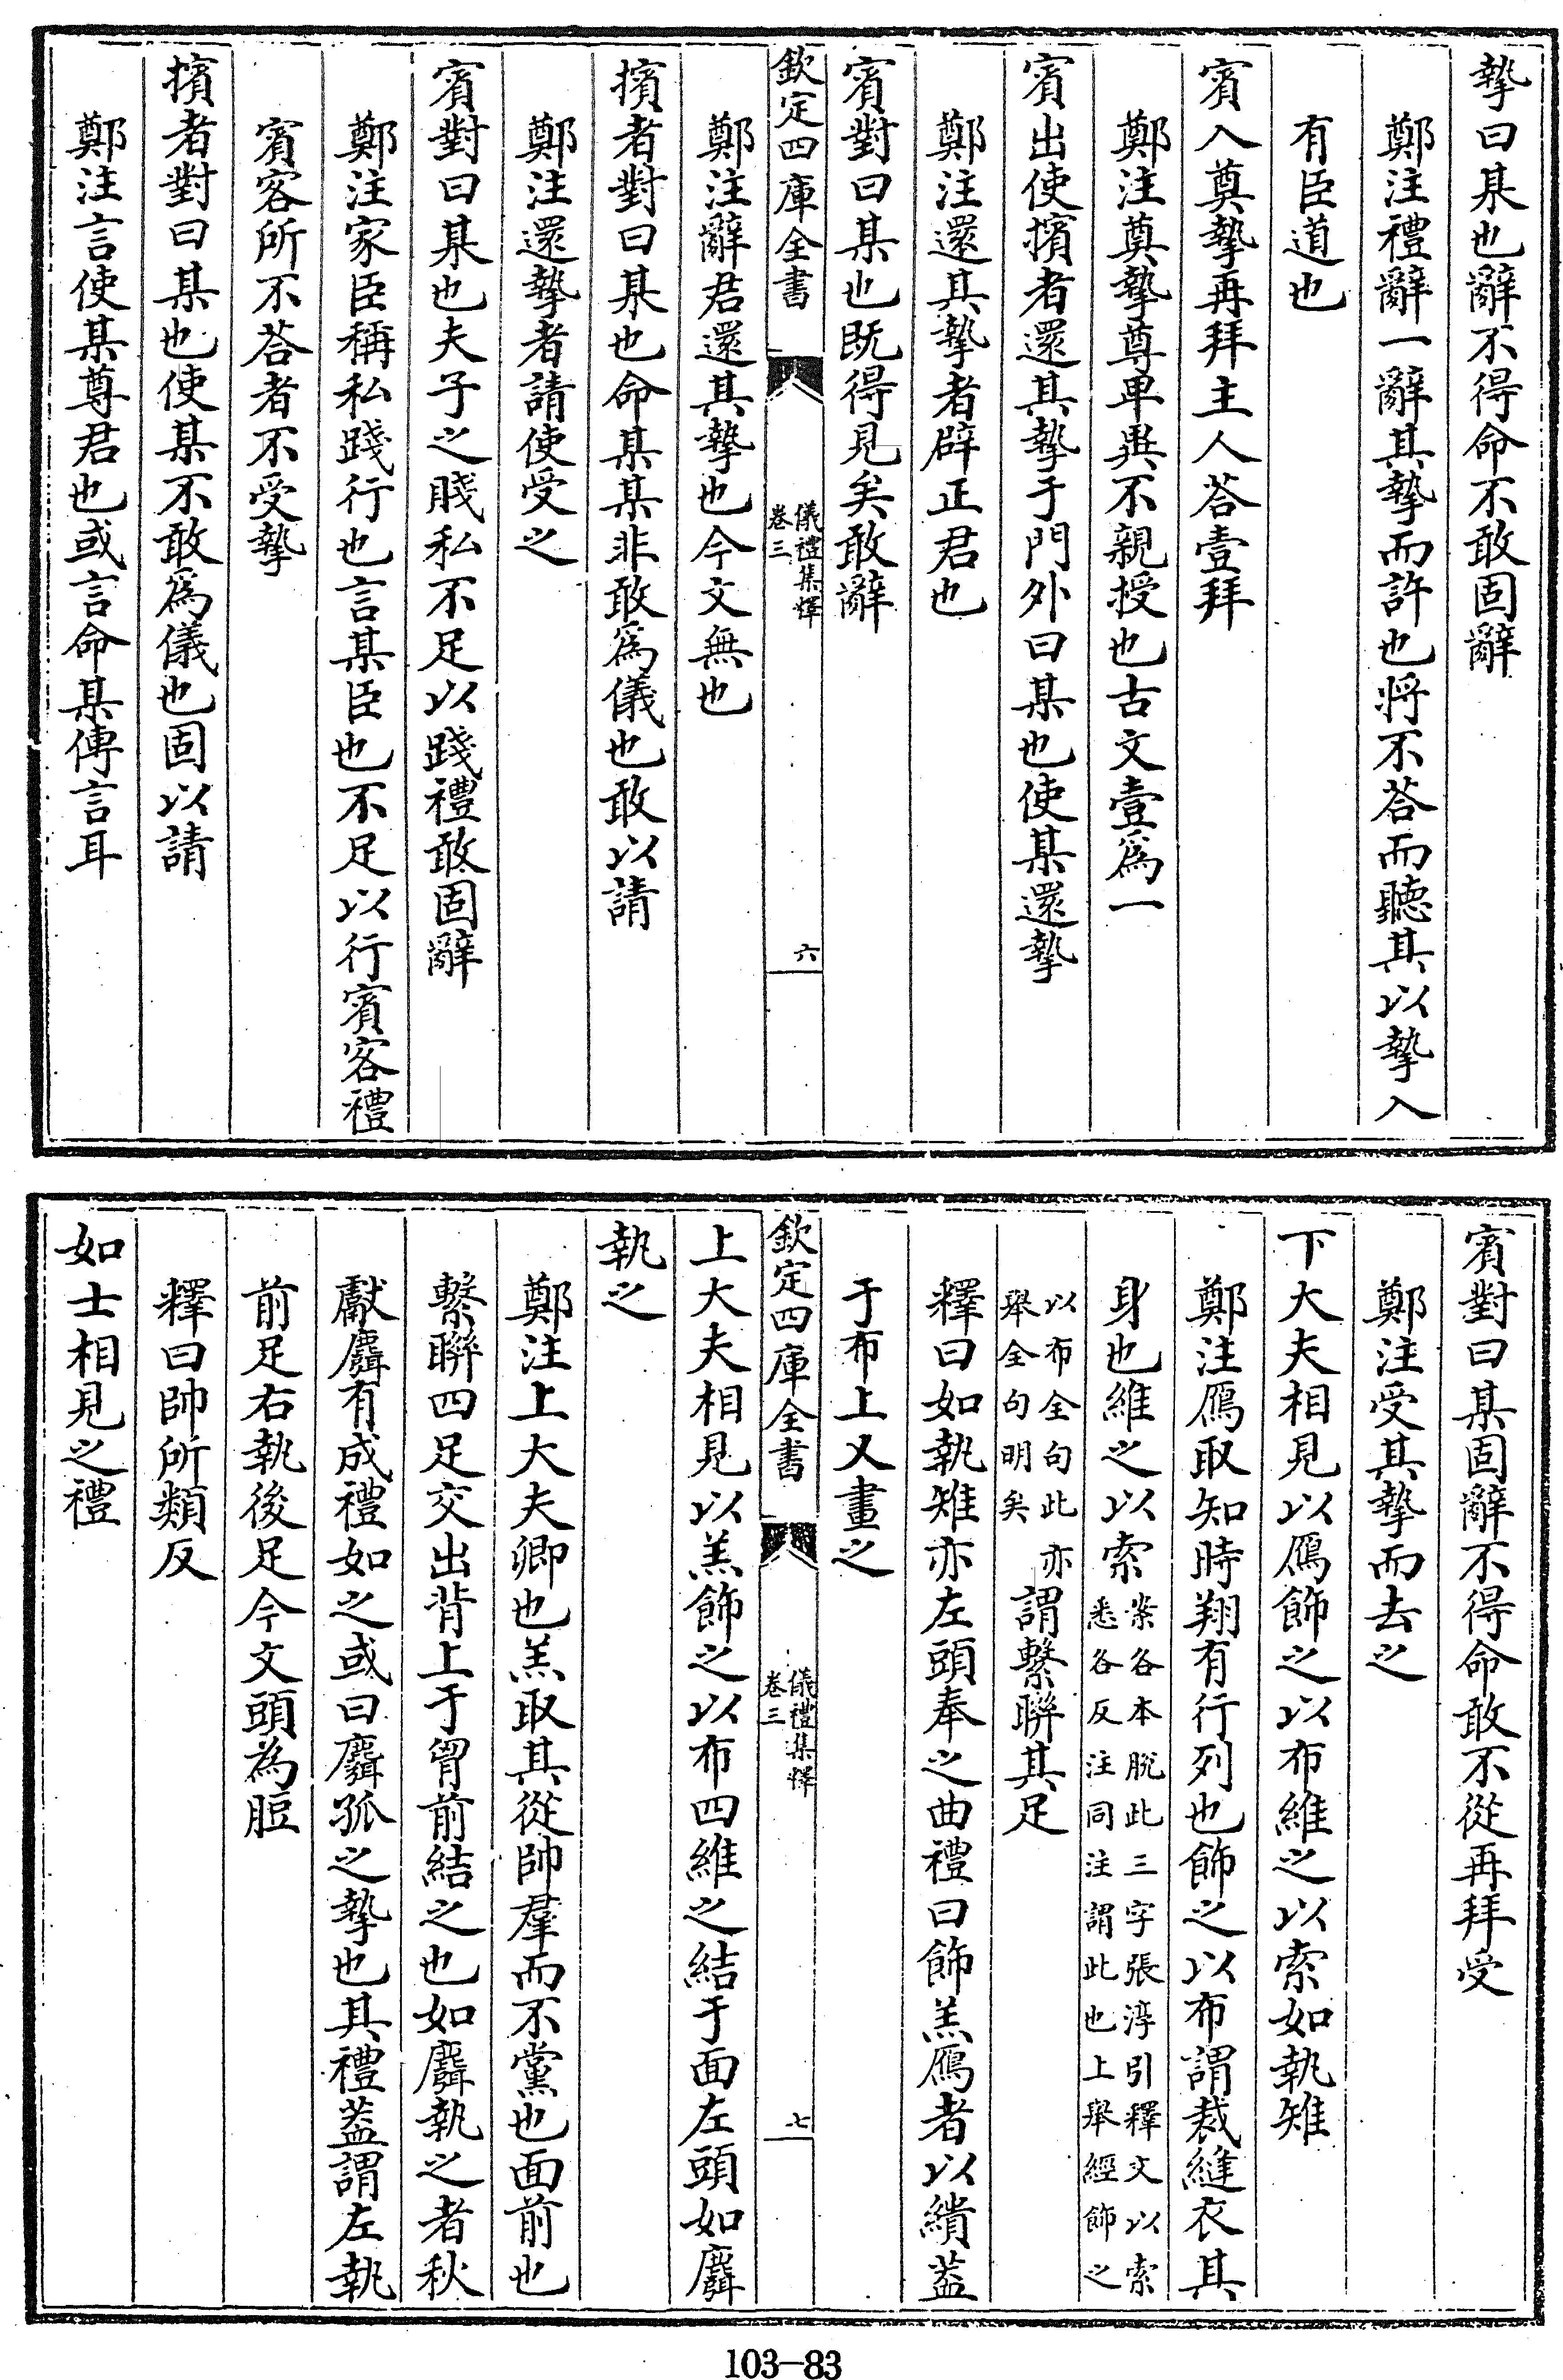 摯曰某也辭不得命不敢固辭
鄭注禮辭一辭其摯而許也將不荅而聽其以摯入
有臣道也
賓入奠摯再拜主人荅壹拜
鄭注奠摯尊卑異不親授也古文壹為一
賓出使擯者還其摯于門外曰某也使某還摯
鄭注還其摯者辟正君也
賓對曰某也既得見矣敢辭
欽定四庫全書
儀禮集釋
卷三
六
鄭注辭君還其摯也今文無也
擯者對曰某也命某某非敢為儀也敢以請
鄭注還摯者請使受之
賓對曰某也夫子之賤私不足以踐禮敢固辭
鄭注家臣稱私踐行也言某臣也不足以行賓客禮
賓客所不荅者不受摯
擯者對曰某也使某不敢為儀也固以請
鄭注言使某尊君也或言命某傳言耳
賓對曰某固辭不得命敢不從再拜受
鄭注受其摯而去之
下大夫相見以鴈飾之以布維之以索如執雉
鄭注鴈取知時翔有行列也飾之以布謂裁縫衣其
身也維之以索案各本脫此三字張淳引釋文以索
悉各反注同注謂此也上舉經飾之
以布全句此亦
舉全句明矣
謂繫聯其足
釋曰如執雉亦左頭奉之曲禮曰飾羔鴈者以繢葢
于布上又畫之
欽定四庫全書
儀禮集釋
卷三
七
上大夫相見以羔飾之以布四維之結于面左頭如麛
執之
鄭注上大夫卿也羔取其從帥羣而不黨也面前也
繫聯四足交出背上于胷前結之也如麛執之者秋
獻麛有成禮如之或曰麛孤之摯也其禮葢謂左執
前足右執後足今文頭為脰
釋曰帥所類反
如士相見之禮
103-83